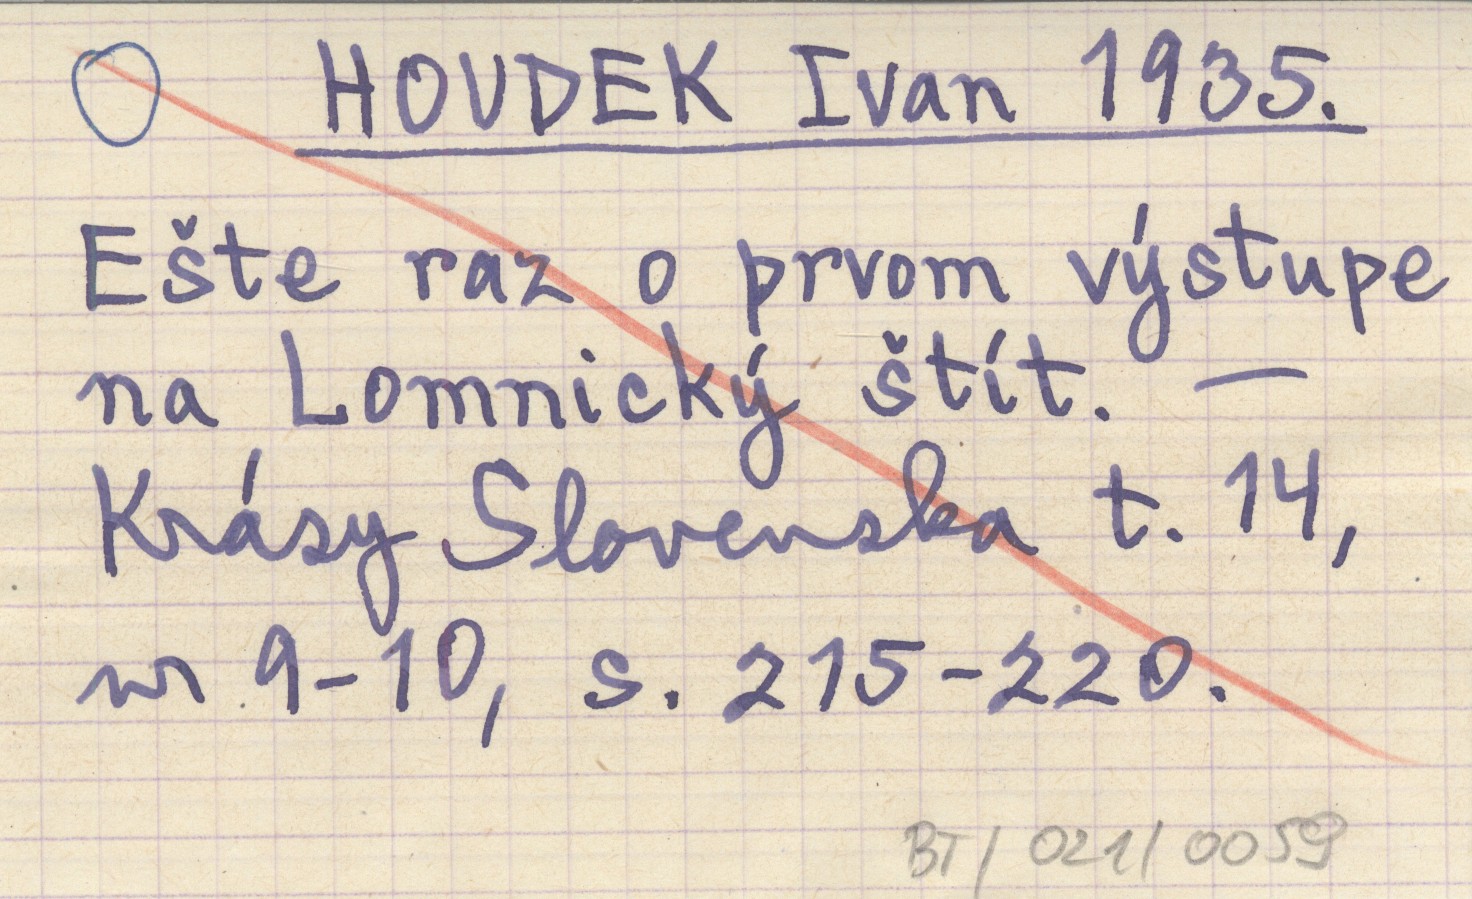 HOUDEK Ivan 1935.
Ešte raz o prvom výstupe
na Lomnický štít. —
Krásy Slovenska t. 14,
nr 9-10, s. 215-220.
BT/021/0059